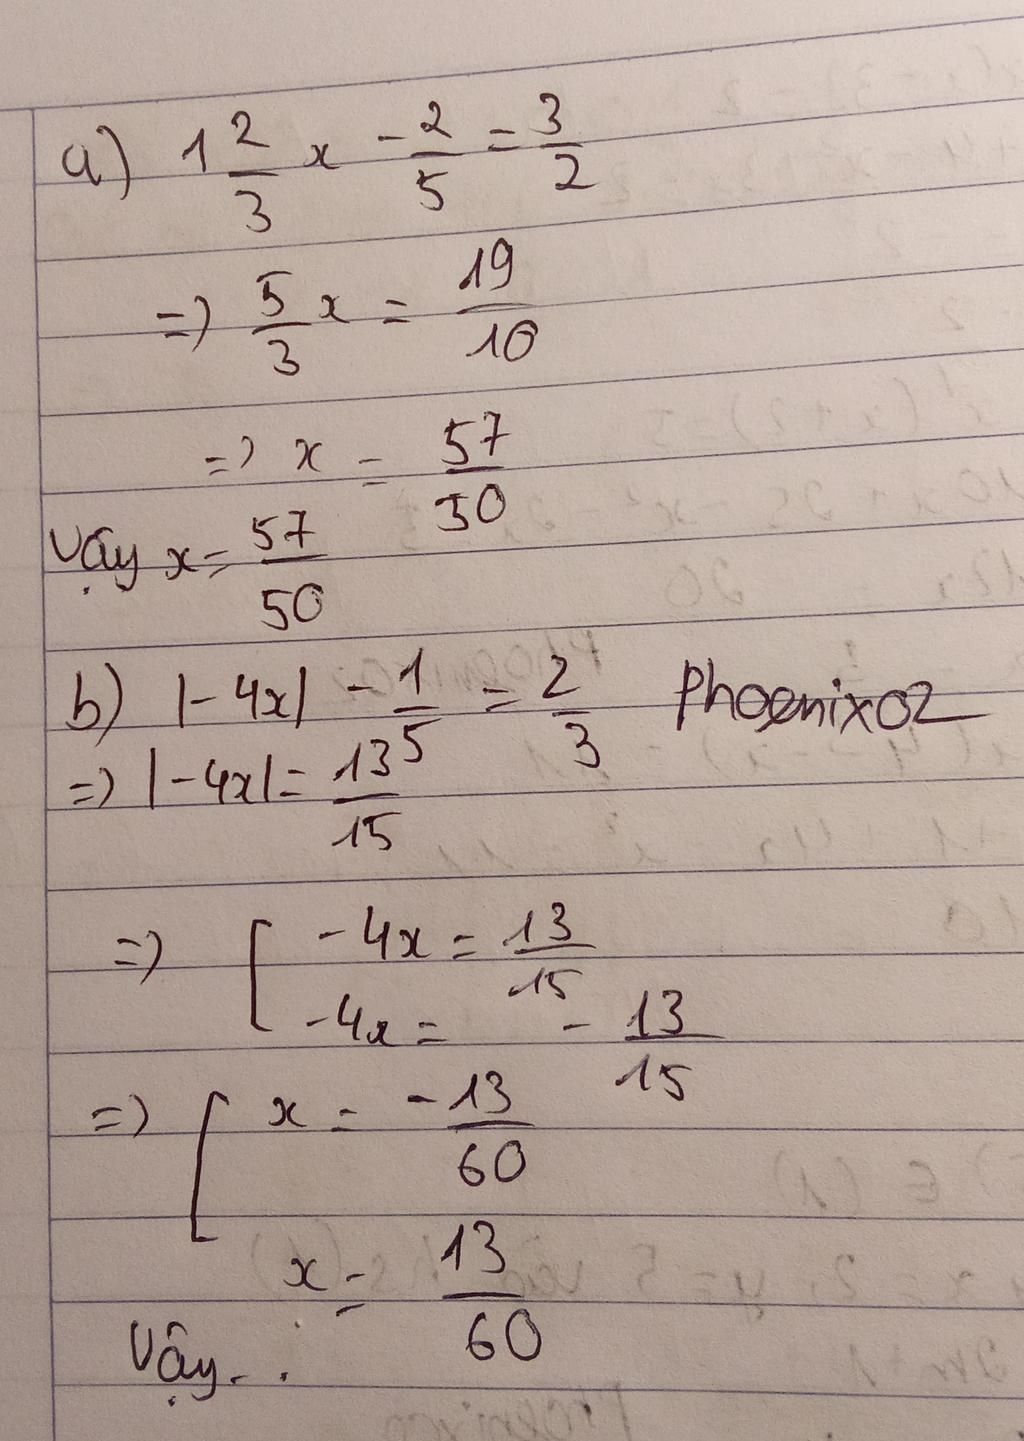 a) 1 2/3 x - 2/5 = 3/2
=> 5/3 x = 19/10
=> x = 57/50
Vậy x = 57/50
b) |-4x| - 1/5 = 2/3 Phoenix02
=> |-4x| = 13/15
=> [ -4x = 13/15
-4x = - 13/15
=> [ x = -13/60
x = 13/60
Vậy...